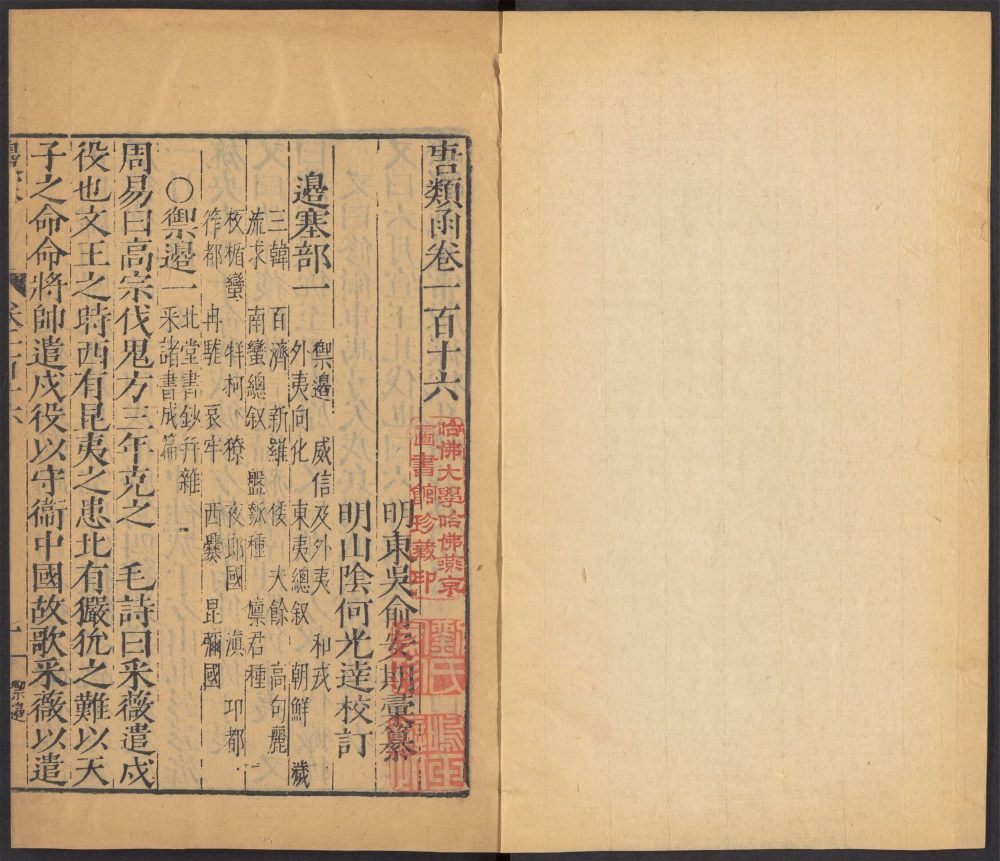 唐類函卷一百十六
明東吳俞安期彙纂
明山陰何光達校訂
邊塞部一
禦邊 威信及外夷 和戎
外夷向化 東夷總叙 朝鮮 濊
三韓 百濟 新羅 倭 夫餘 高句麗
流求 南蠻總叙 盤瓠種 廪君種
板楯蠻 牂柯 獠 夜郎國 滇 邛都
筰都 冉駹 哀牢 西爨 昆彌國
〇禦邊一 北堂書鈔并雜
采諸書成篇
周易曰高宗伐鬼方三年克之 毛詩曰采薇遣戍
役也文王之時西有昆夷之患北有玁狁之難以天
子之命命將帥遣戍役以守衞中國故歌采薇以遣
卷一百十六
一
禦邊
哈佛大學哈佛燕京
圖書館珍藏印